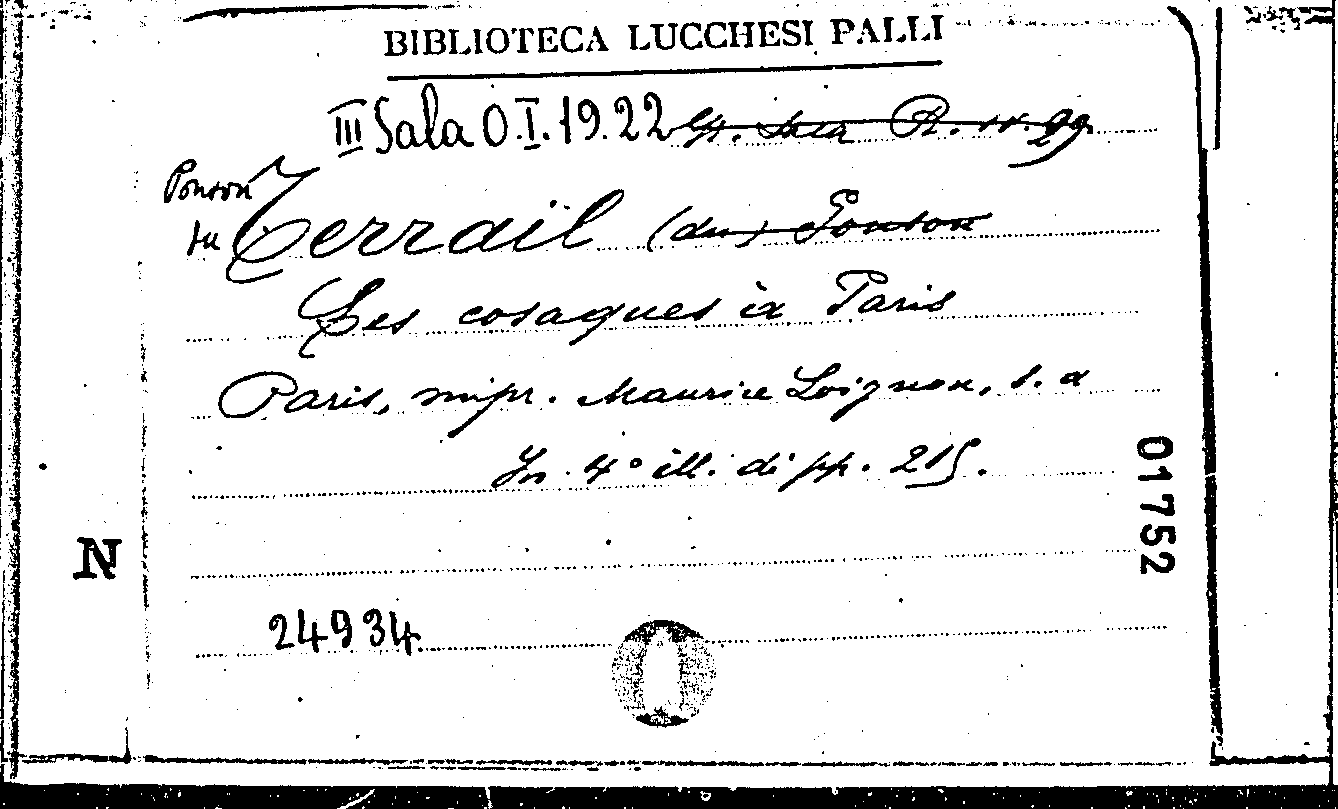 BIBLIOTECA LUCCHESI PALLI
III Sala O.I.19.22
Ponson
du Terrail (du) Ponson
Les cosaques à Paris
Paris, impr. Maurice Loignon, s. a
In 4° ill. di pp. 215.
01752
N
24934